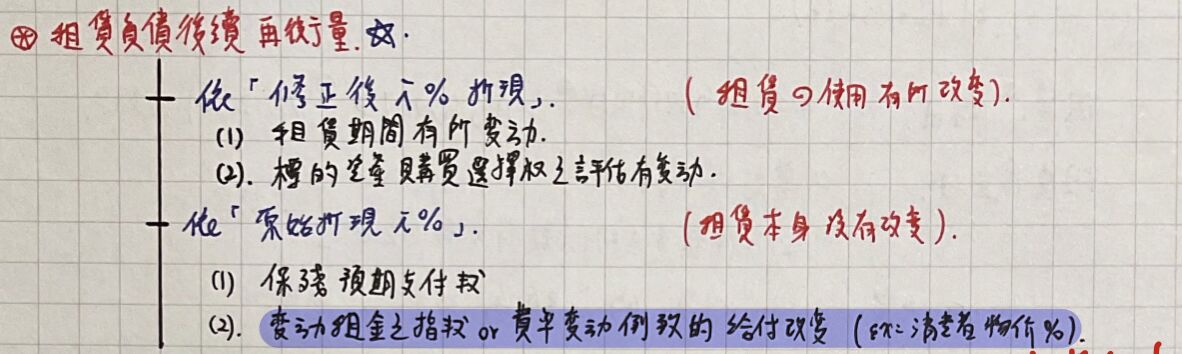 ⊛ 租賃負債後續再衡量.☆.
依「修正後 i% 折現」. (租賃の使用有所改變).
(1) 租賃期間有所變动.
(2). 標的資產購買選擇权之評估有变动.
依「原始折現 i%」. (租賃本身没有改变).
(1) 保殘預期支付
(2). 变动租金之指数 or 費率变动倒致的給付改變 (ex: 消費者物价%).